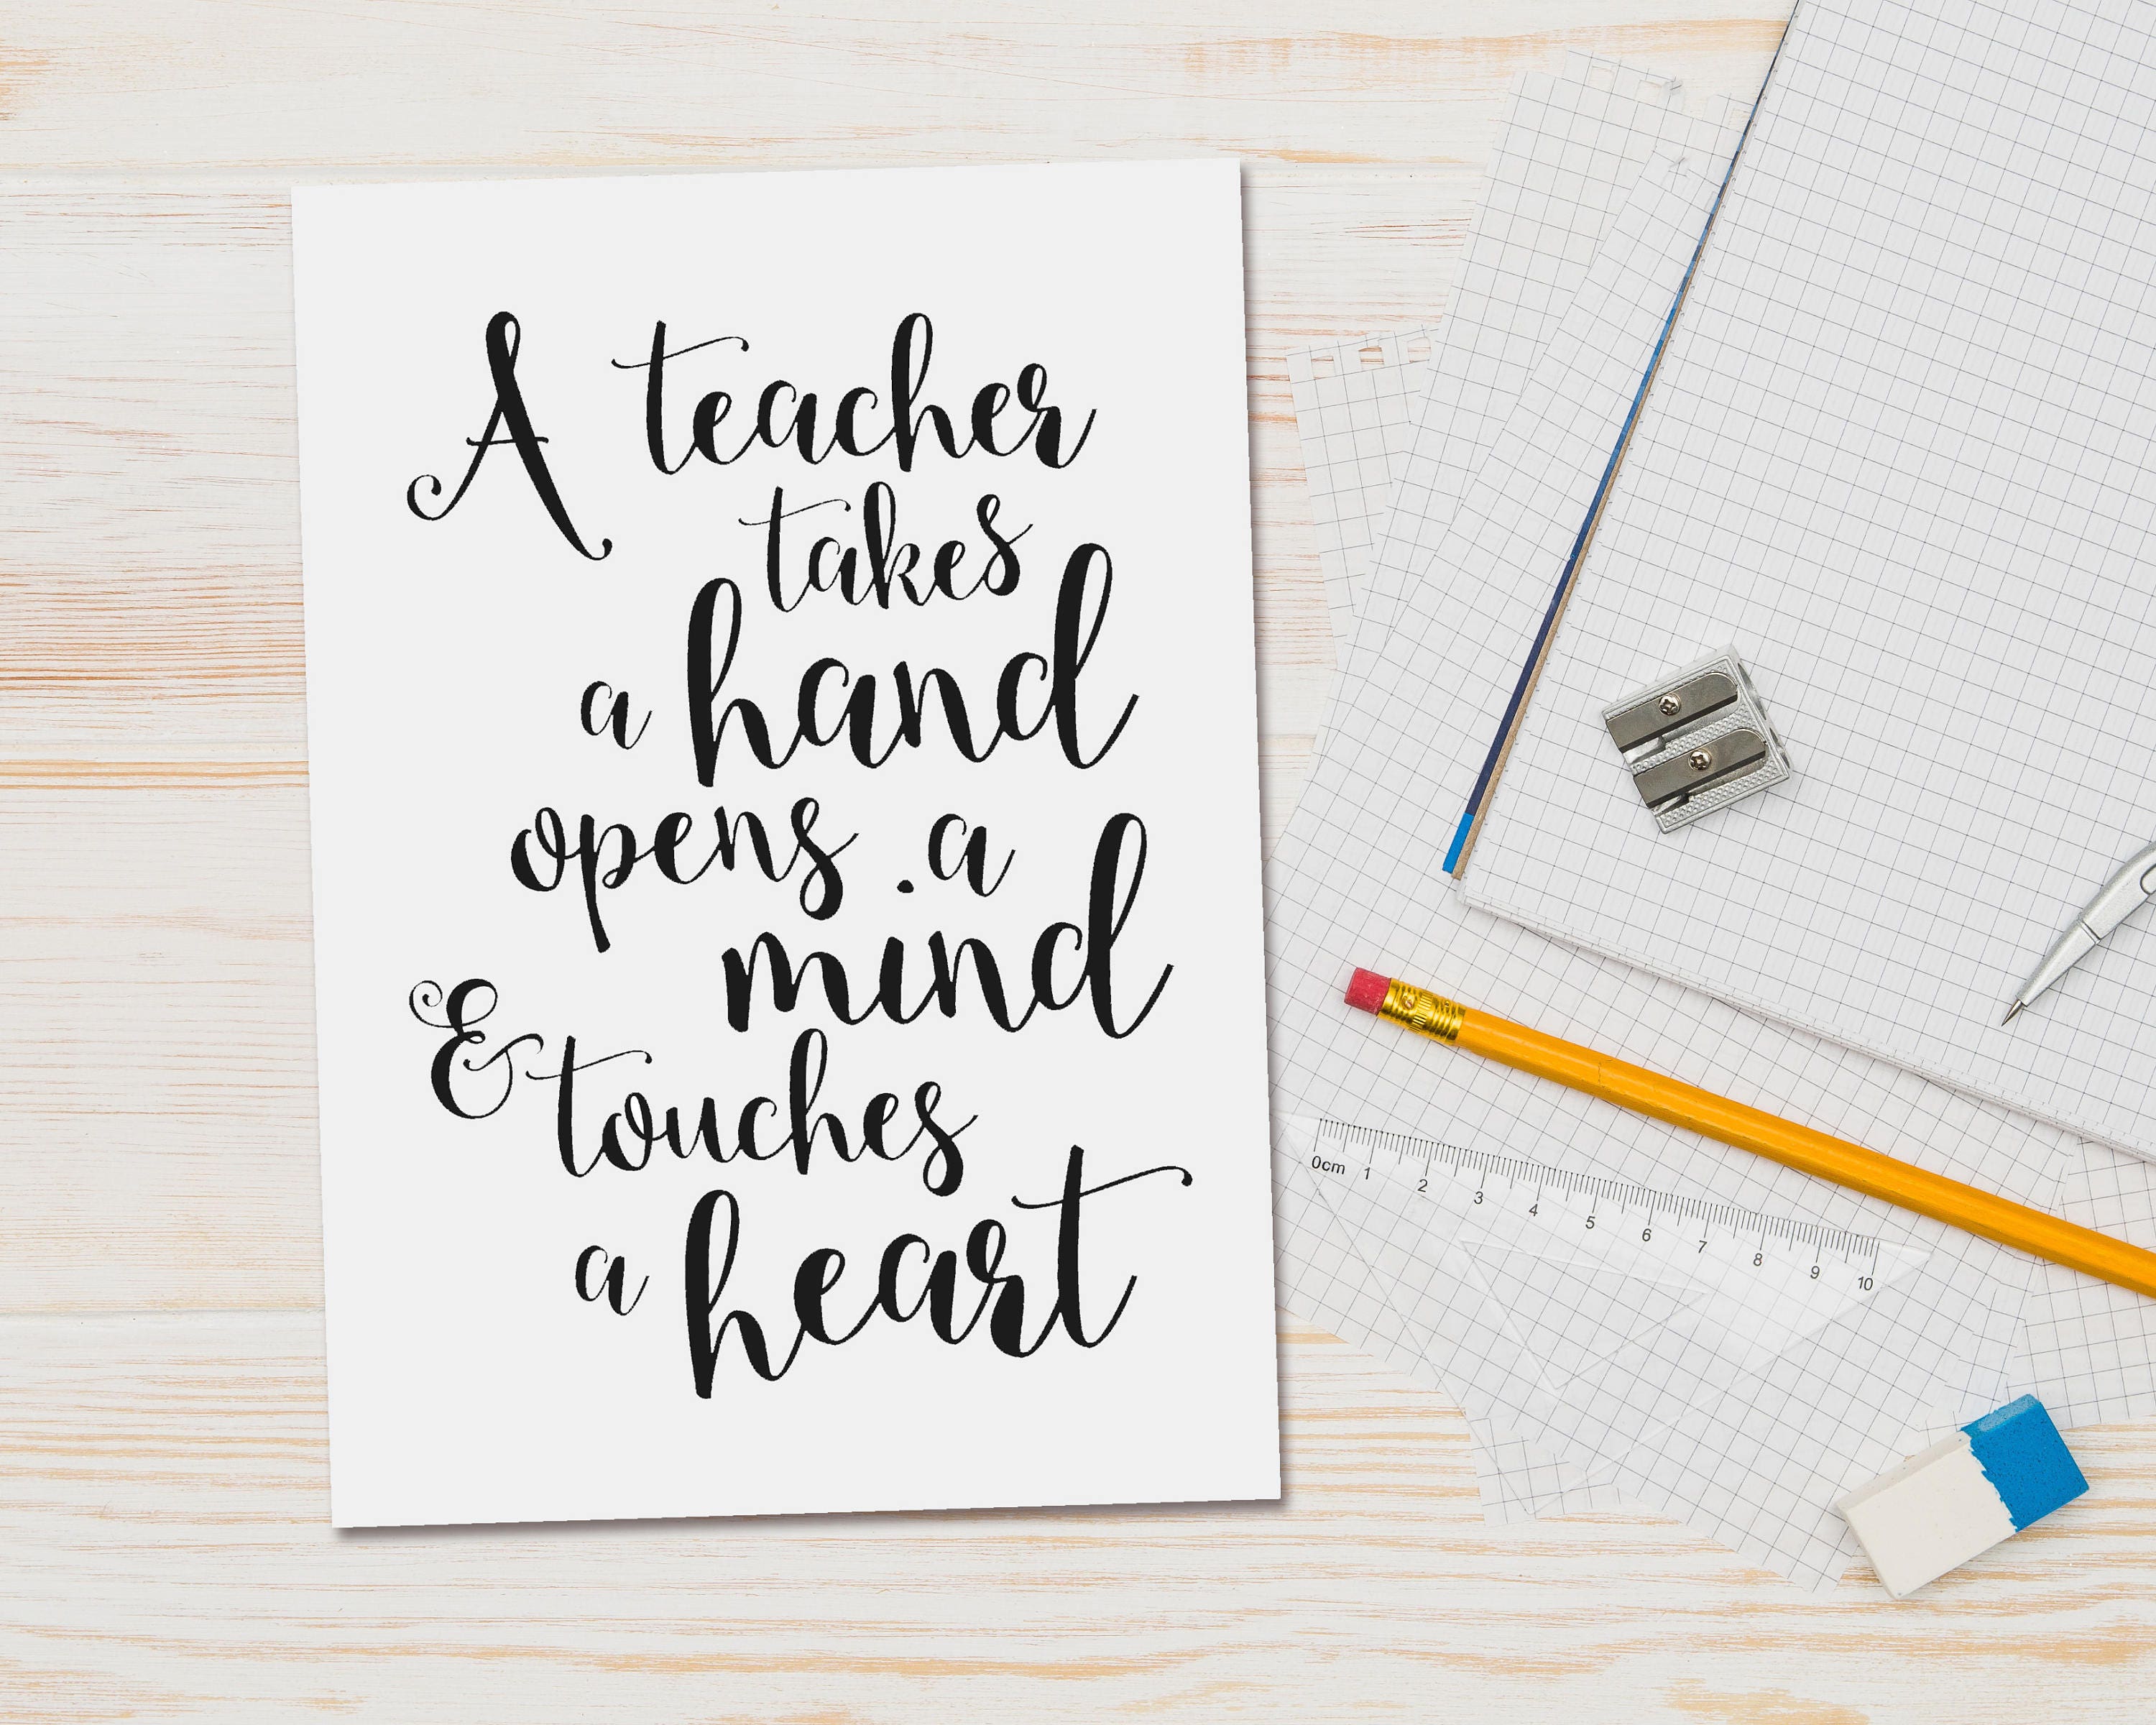 A teacher
takes
a hand
opens a
mind
& touches
a heart
0cm 1 2 3 4 5 6 7 8 9 10